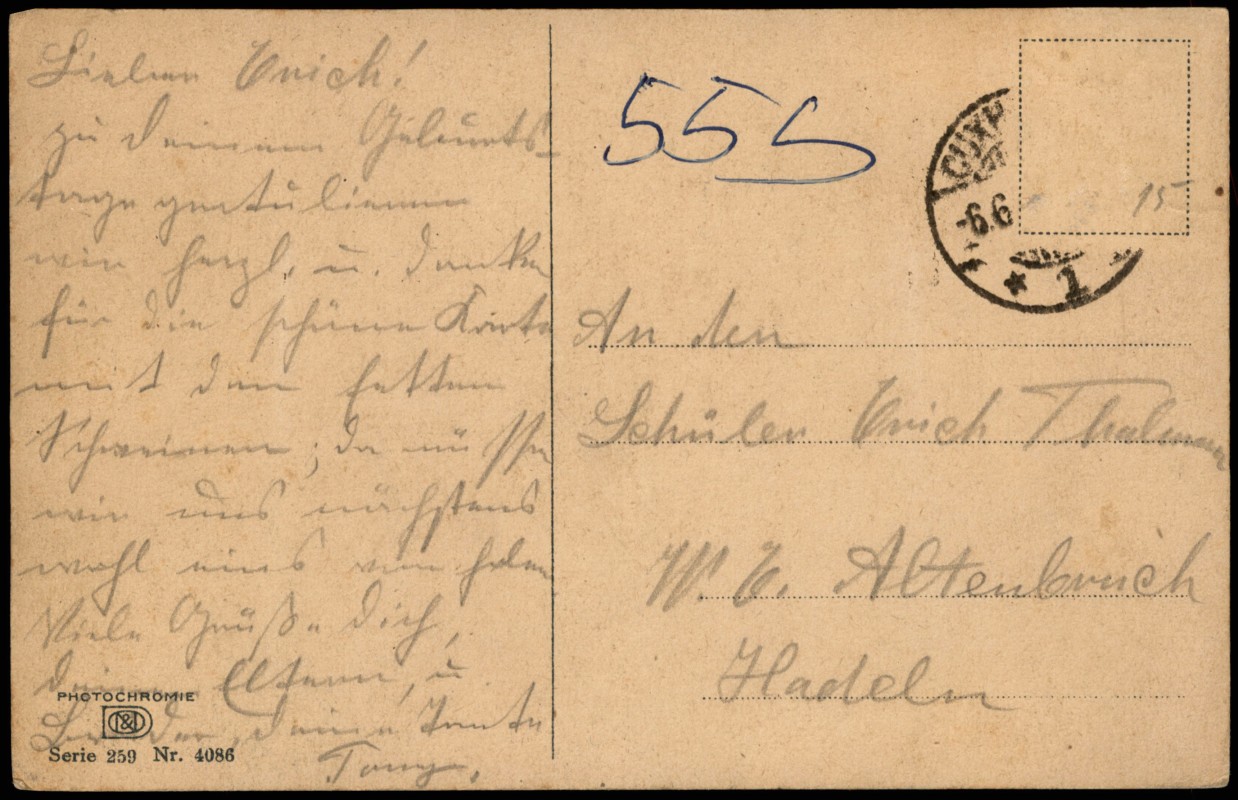 Lieber Erich!
zu deinem Geburts-
tage gratulieren
wir herzl. u. danken
für die schöne Karte
mit den fetten
Schweinen; da müssen
wir uns nächstens
wohl eins von holen
Viele Grüße Dich,
deinen Eltern, u.
Bruder, deine Tante
Tony.
PHOTOCHROMIE
N&C
Serie 259 Nr. 4086
555
CUXH
-6.6
* 1
15
An den
Schüler Erich Thalmann
W. E. Altenbruch
Hadeln